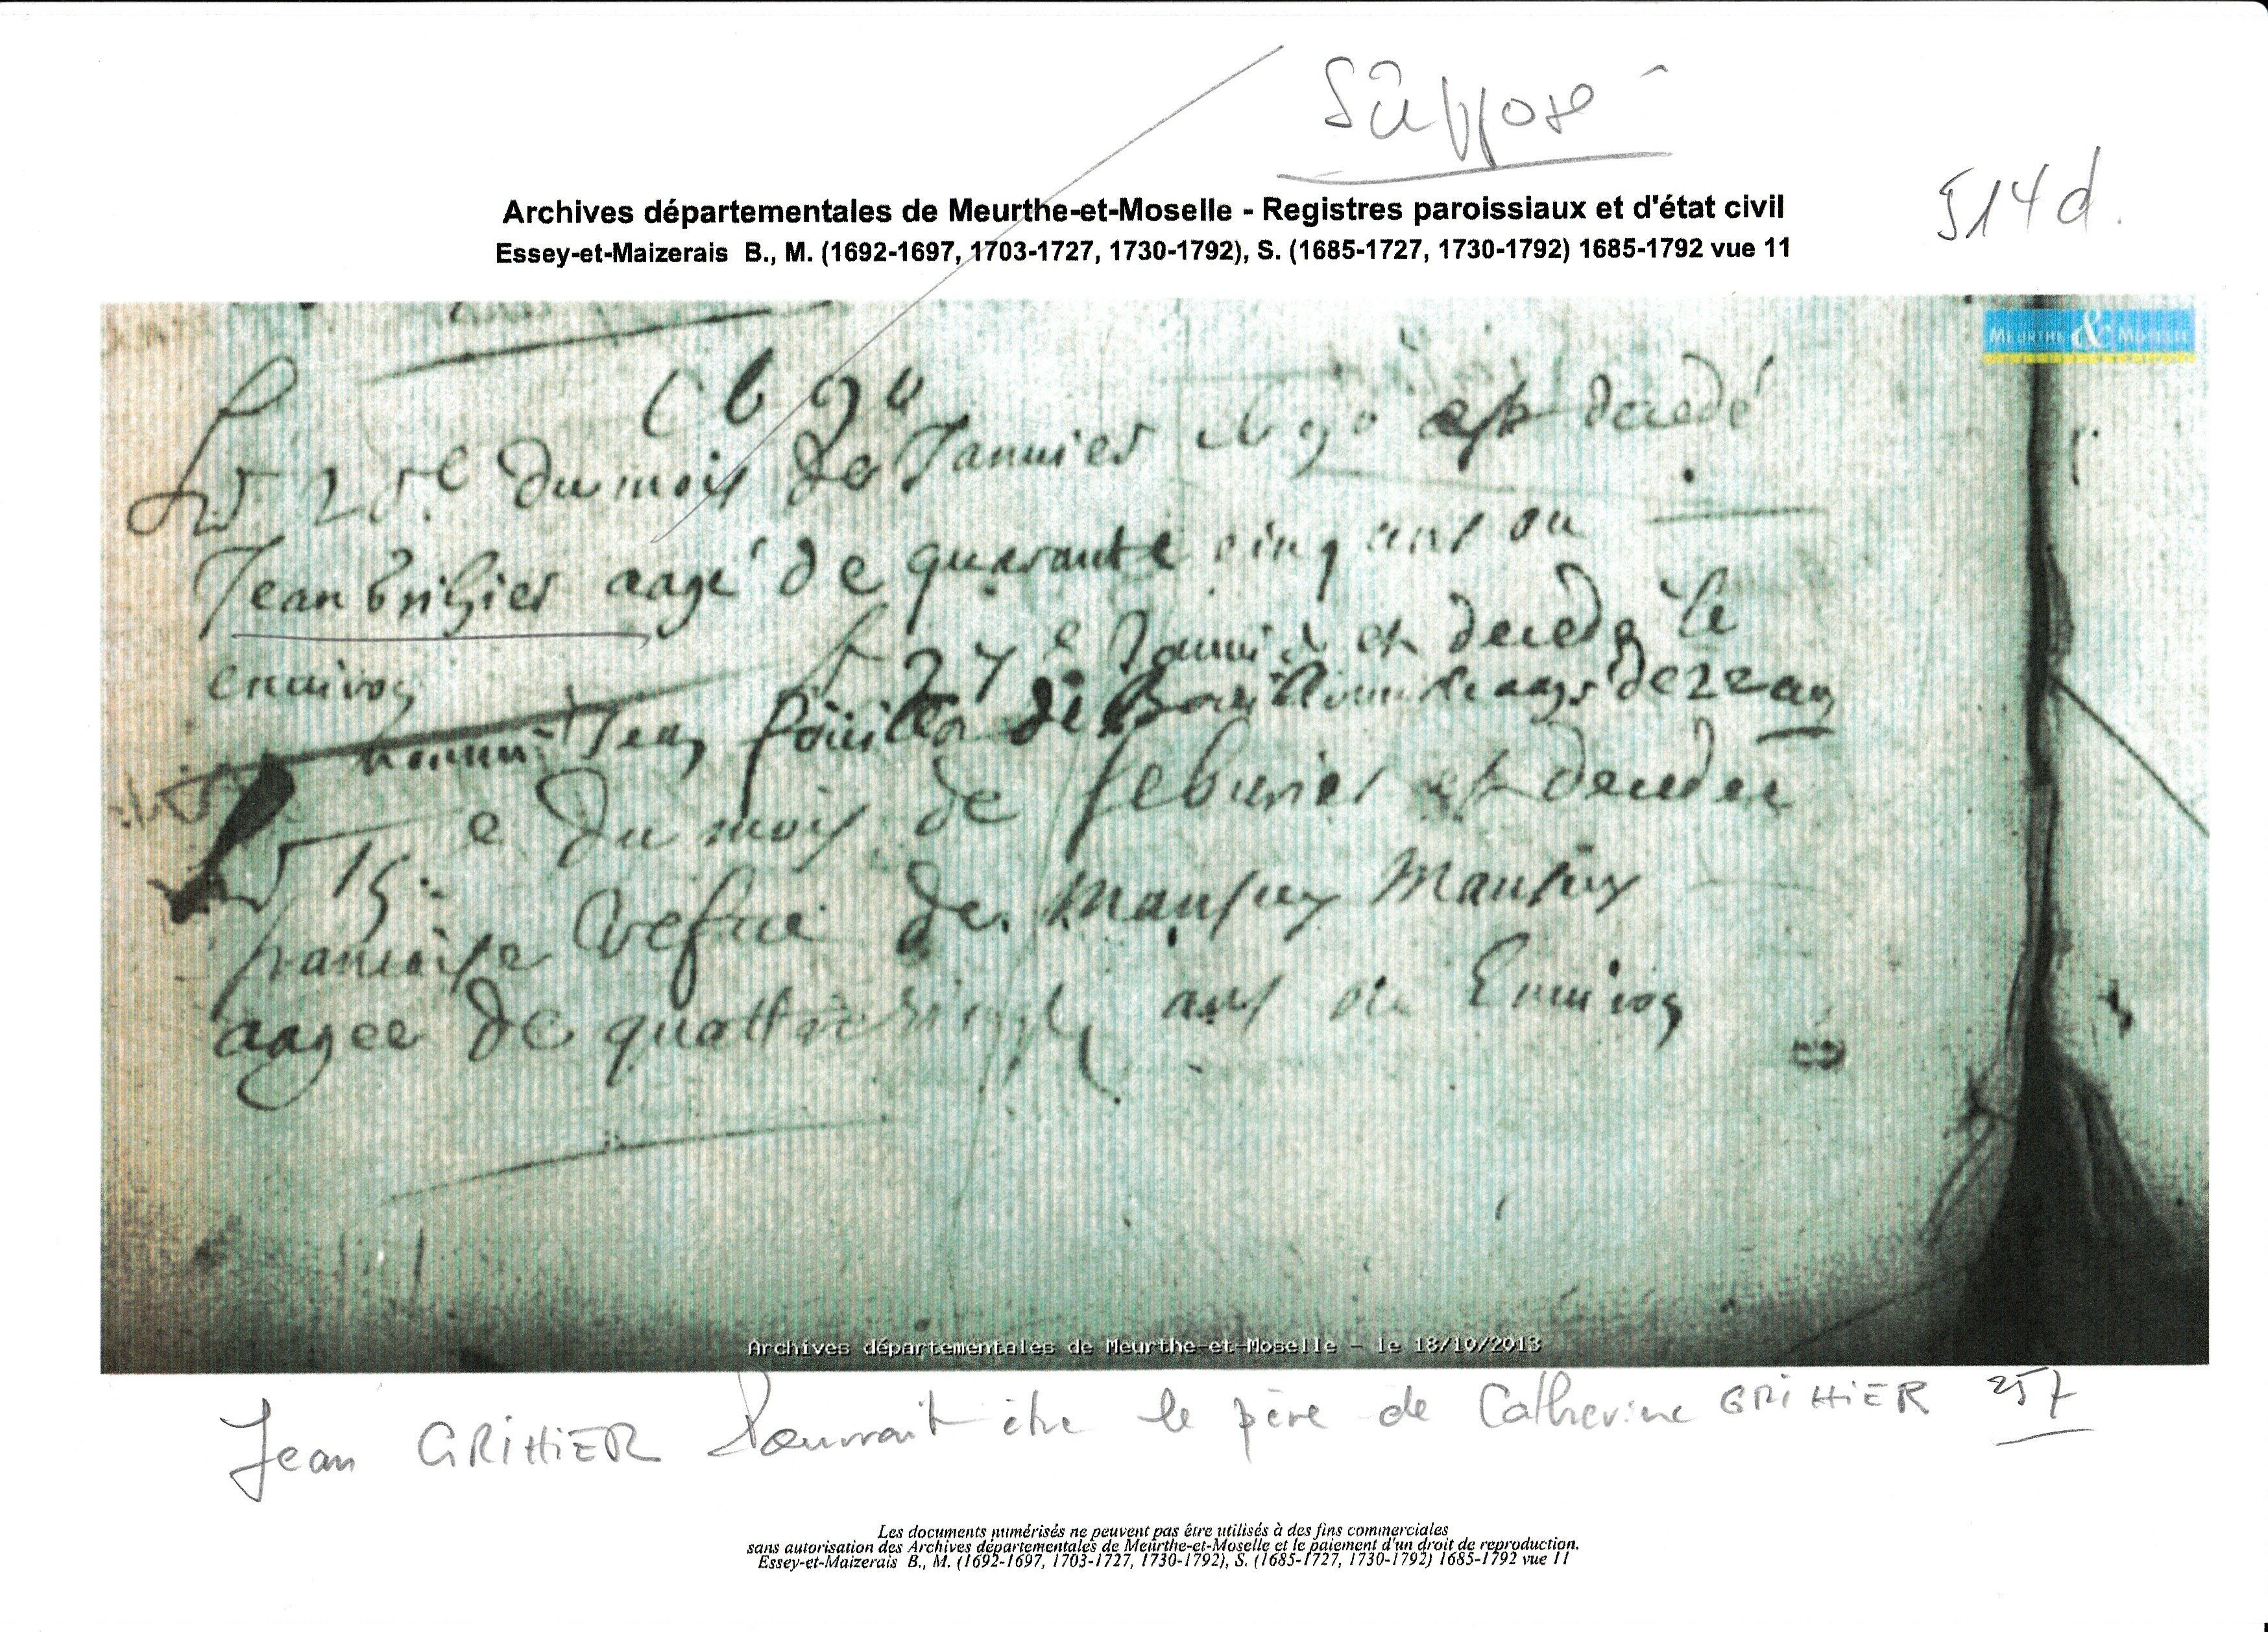 Supposé
514d.
Archives départementales de Meurthe-et-Moselle - Registres paroissiaux et d'état civil
Essey-et-Maizerais B., M. (1692-1697, 1703-1727, 1730-1792), S. (1685-1727, 1730-1792) 1685-1792 vue 11
MEURTHE & MOSELLE
du mois de Januier est decedé
Jean Grihier aagé de quarante cinq ans ou
enuiron
Le 27e Januier est decede le
nommé Jean de aagé de 22 an
Le 15e du mois de feburier est decedee
francoise vefue de Mansuy Mansuy
aagee de quattre vingt ans ou Enuiron
Archives départementales de Meurthe-et-Moselle - le 18/10/2013
Jean GRIHIER Pourrait être le père de Catherine GRIHIER 257
Les documents numérisés ne peuvent pas être utilisés à des fins commerciales
sans autorisation des Archives départementales de Meurthe-et-Moselle et le paiement d'un droit de reproduction.
Essey-et-Maizerais B., M. (1692-1697, 1703-1727, 1730-1792), S. (1685-1727, 1730-1792) 1685-1792 vue 11